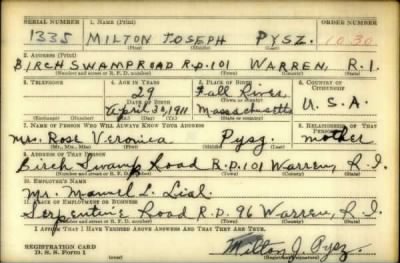 SERIAL NUMBER 1. NAME (Print) ORDER NUMBER
1335 MILTON JOSEPH PYSZ. 1030
(First) (Middle) (Last)
2. ADDRESS (Print)
BIRCH SWAMP ROAD R.D. 101 WARREN, R.I.
(Number and street or R. F. D. number) (Town) (County) (State)
3. TELEPHONE 4. AGE IN YEARS 5. PLACE OF BIRTH 6. COUNTRY OF CITIZENSHIP
29 Fall River
DATE OF BIRTH (Town or county)
April 30, 1911 Massachusetts U.S.A.
(Exchange) (Number) (Mo.) (Day) (Yr.) (State or country)
7. NAME OF PERSON WHO WILL ALWAYS KNOW YOUR ADDRESS 8. RELATIONSHIP OF THAT PERSON
Mrs. Rose Veronica Pysz mother
(Mr., Mrs., Miss) (First) (Middle) (Last)
9. ADDRESS OF THAT PERSON
Birch Swamp Road R.D. 101 Warren, R.I.
(Number and street or R. F. D. number) (Town) (County) (State)
10. EMPLOYER'S NAME
Mr. Manuel L. Lial
11. PLACE OF EMPLOYMENT OR BUSINESS
Serpentine Road R.D. 96 Warren, R.I.
(Number and street or R. F. D. number) (Town) (County) (State)
I AFFIRM THAT I HAVE VERIFIED ABOVE ANSWERS AND THAT THEY ARE TRUE.
REGISTRATION CARD
D. S. S. Form 1 Milton J. Pysz
(Registrant's signature)